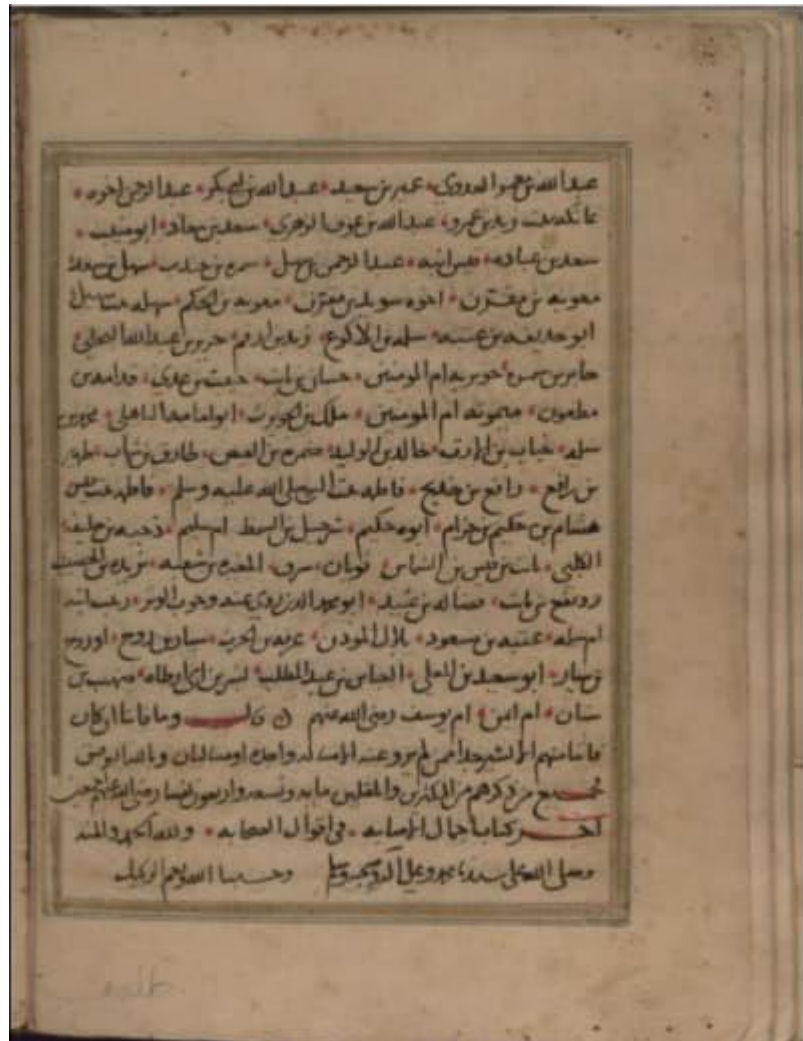 عبدالله بن معمر العدوي عمير بن سعيد عبدالله بن ابي بكر عبدالرحمن اخوه
عاتكه بنت زيد بن عمرو عبدالله بن عوف الزهري سعد بن معاذ ابو منيب
سعد بن عباده قيس ابنه عبدالرحمن بن سهل سمره بن جندب سهل بن سعد
معويه بن مقرن اخوه سويد بن مقرن معويه بن الحكم سهله بنت سهيل
ابو حذيفه بن عتبه سلمه بن الاكوع زيد بن ارقم جرير بن عبدالله البجلي
جابر بن سمره جويريه ام المومنين حسان بن ثابت حبيب بن عدي قدامه بن
مظعون ميمونه ام المومنين ملك بن الحويرث ابو امامه الباهلي محمد بن
مسلمه خباب بن الارت خالد بن الوليد ضمره بن العيص طارق بن شهاب ظهير
بن رافع رافع بن خديج فاطمه بنت النبي صلى الله عليه وسلم فاطمه بنت قيس
هشام بن حكيم بن حزام ابوه حكيم شرحبيل بن السمط ام سليم دحيه بن خليفه
الكلبي ثابت بن قيس بن الشماس ثوبان سرق المغيره بن شعبه بريده بن الحصيب
رويفع بن ثابت فضاله بن عبيد ابو محمد الذي روي عنه وجوب الوتر زينب ابنة
ام سلمه عتبه بن مسعود بلال الموذن سيار بن روح او روح
بن سيار ابو سعيد بن المعلي العباس بن عبد المطلب بسر بن ابي ارطاه صهيب بن
سنان ام ايمن ام يوسف رضي الله عنهم قال وما فاتنا ان كان
فاتنا منهم الا اليسير جدا ممن لم يرو عنه الا مساله واحده او مسالتان وبالله التوفيق
فجميع من ذكرهم من المكثرين والمقلين مايه وتسعه واربعون نفسا رضي الله عنهم اجمعين
اخر كتاب اجمال الاصابه في اقوال الصحابه ولله الحمد والمنه
وصلى الله على سيدنا محمد وعلى آله وصحبه وسلم وحسبنا الله ونعم الوكيل